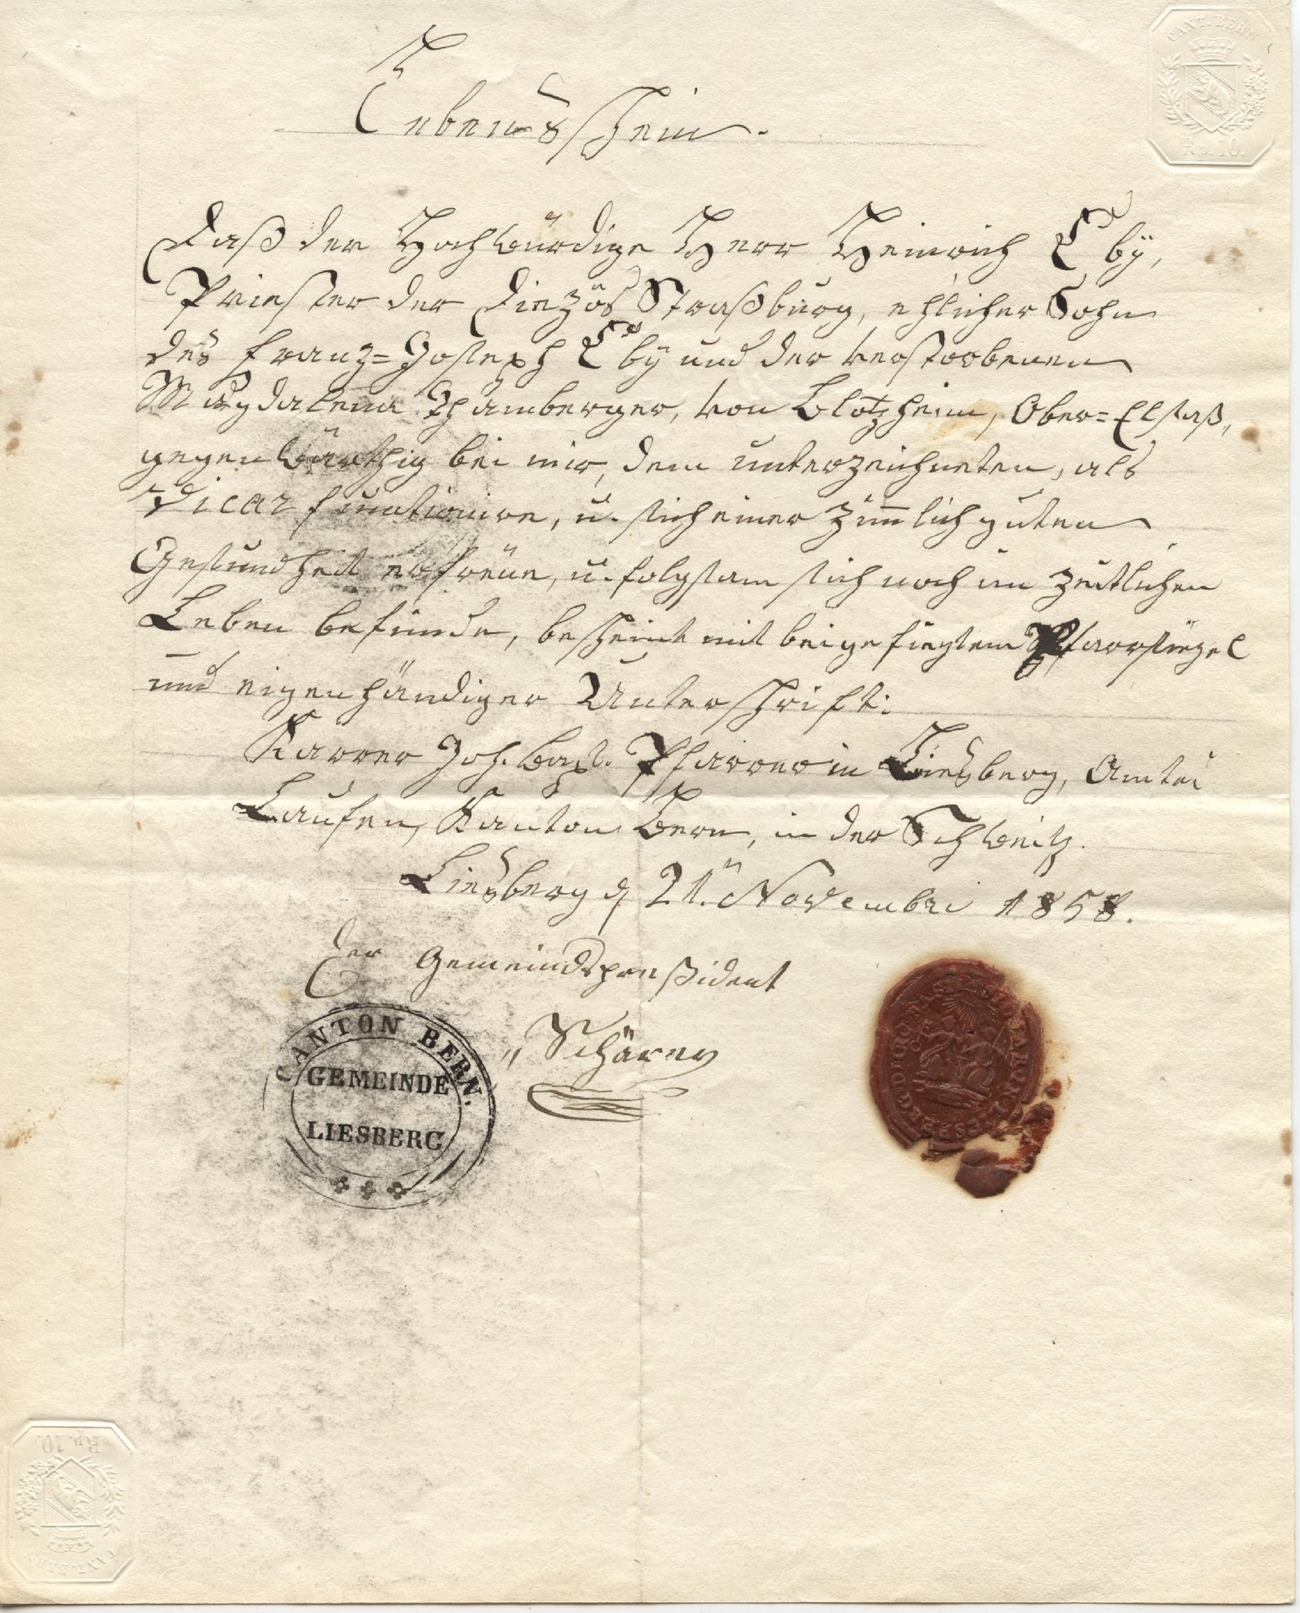 CANT. BERN
Rp. 10.
Lebensschein.
Daß der Hochwürdige Herr Heinrich Eby,
Priester der Diezös Straßburg, ehlicher Sohn
des Franz=Joseph Eby und der verstorbenen
Magdalena Schamberger, von Blotzheim, Ober=Elsaß,
gegenwärthig bei mir, dem unterzeichneten, als
Vicar funktionire, u. sich einer zimlich guten
Gesundheit erfreue, u. folgsam sich noch im zeitlichen
Leben befinde, bescheint mit beigefügtem Pfarrsiegel
und eigenhändiger Unterschrift:
Karrer Joh. Bapt. Pfarrer in Liesberg, Amtei
Laufen, Kanton Bern, in der Schweitz.
Liesberg d 21. November 1858.
Der Gemeindspresßident
Schärer
CANTON BERN.
GEMEINDE
LIESBERG
Rp. 10.
CANT. BERN